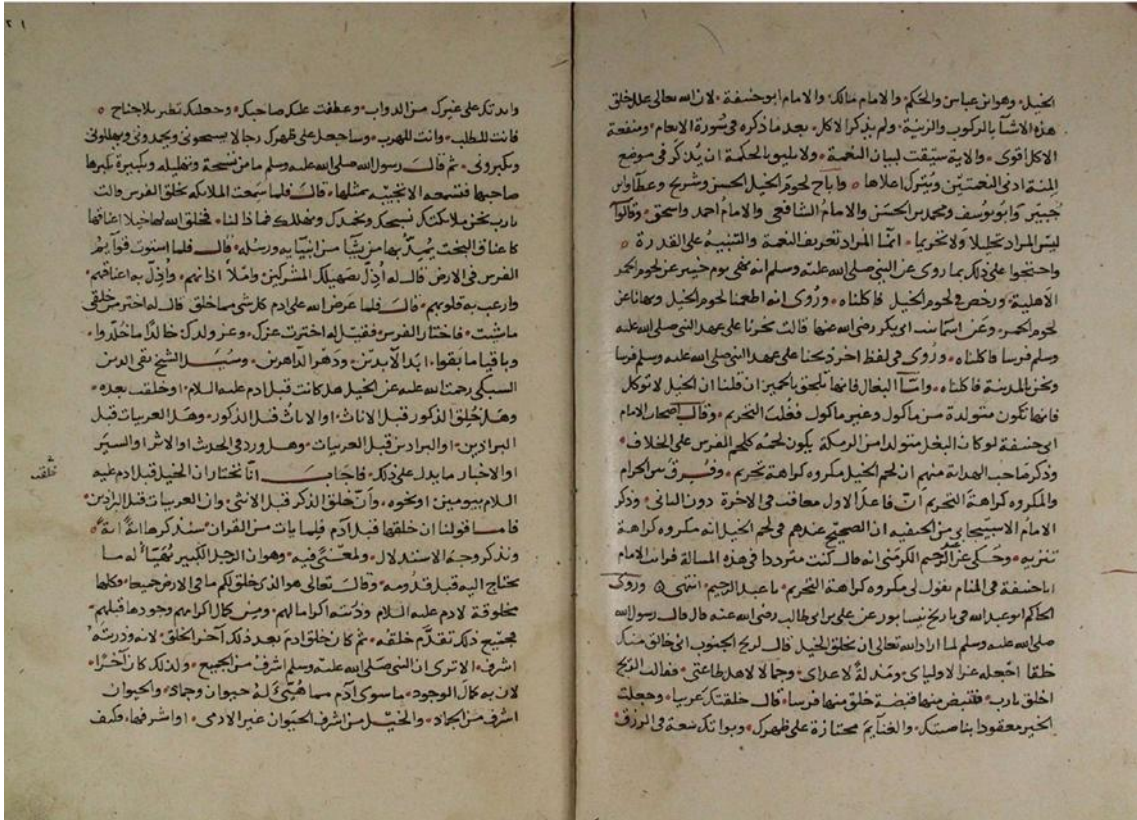 الخيل وهو ابن عباس والحكم والامام مالك والامام ابو حنيفة لان الله تعالى علل خلق
هذه الاشيا بالركوب والزينة ولم يذكر الاكل بعد ما ذكره في سورة الانعام ومنفعة
الاكل اقوى والاية سيقت لبيان النعمة ولا يليق بالحكمة ان يذكر في موضع
المنة ادنى النعمتين ويترك اعلاها واباح لحوم الخيل الحسن وشريح وعطا وابن
جبير وابو يوسف ومحمد بن الحسن والامام الشافعي والامام احمد واسحق وقالوا
ليس المراد تحليلا ولا تحريما انما المراد تعريف النعمة والتنبيه على القدرة
واحتجوا على ذلك بما روى عن النبي صلى الله عليه وسلم انه نهى يوم خيبر عن لحوم الحمر
الاهلية ورخص في لحوم الخيل فاكلناه وروى انه اطعمنا لحوم الخيل ونهانا عن
لحوم الحمر وعن اسما بنت ابي بكر رضى الله عنها قالت نحرنا على عهد النبي صلى الله عليه
وسلم فرسا فاكلناه وروى في لفظ اخر ذبحنا على عهد النبي صلى الله عليه وسلم فرسا
ونحن بالمدينة فاكلناه واما البغال فانها تلحق بالحمير ان قلنا ان الخيل لا توكل
فانها تكون متولدة من ماكول وغير ماكول فغلب التحريم وقال اصحاب الامام
ابى حنيفة لو كان البغل متولدا من الرمكة يكون لحمه كلحم الفرس على الخلاف
وذكر صاحب الهداية منهم ان لحم الخيل مكروه كراهة تحريم وفرق بين الحرام
والمكروه كراهة التحريم ان فاعل الاول معاقب في الاخرة دون الثاني وذكر
الامام الاسبيجابي من الحنفيه ان الصحيح عندهم في لحم الخيل انه مكروه كراهة
تنزيه وحكى عن عبد الرحيم الكرمني انه قال كنت مترددا في هذه المسالة فرايت الامام
ابا حنيفة في المنام يقول لي مكروه كراهة التحريم يا عبد الرحيم انتهى وروى
الحاكم ابو عبد الله في تاريخ نيسابور عن على بن ابى طالب رضى الله عنه قال قال رسول الله
صلى الله عليه وسلم لما اراد الله تعالى ان يخلق الخيل قال لريح الجنوب اني خالق منك
خلقا اجعله عزا لاوليائ ومذلة لاعدائ وجمالا لاهل طاعتي فقالت الريح
اخلق يارب فقبض منها قبضة خلق منها فرسا قال خلقتك عربيا وجعلت
الخير معقودا بناصيتك والغنايم محتازة على ظهرك وبواتك سعة في الرزق
وايدتك على غيرك من الدواب وعطفت عليك صاحبك وجعلتك تطير بلا جناح
فانت للطلب وانت للهرب وساجعل على ظهرك رجالا يسبحوني ويحمدوني ويهللوني
ويكبروني ثم قال رسول الله صلى الله عليه وسلم ما من تسبيحة وتهليلة وتكبيرة يكبرها
صاحبها فتسمعه الا تجيبه بمثلها قال فلما سمعت الملايكة بخلق الفرس قالت
يارب نحن ملايكتك نسبحك ونحمدك ونهللك فماذا لنا فخلق الله لها خيلا اعناقها
كاعناق البخت يمد بها من يشا من انبيايه ورسله قال فلما استوت قوايم
الفرس في الارض قال له اذل بصهيلك المشركين واملا اذانهم واذل به اعناقهم
وارعب به قلوبهم قال فلما عرض الله على ادم كل شي مما خلق قال له اختر من خلقي
ماشيت فاختار الفرس فقيل له اخترت عزك وعز ولدك خالدا ما خلدوا
وباقيا ما بقوا ابد الابدين ودهر الداهرين وسيل الشيخ تقي الدين
السبكي رحمة الله عليه عن الخيل هل كانت قبل ادم عليه السلام او خلقت بعده
وهل خلق الذكور قبل الاناث او الاناث قبل الذكور وهل العربيات قبل
البراذين او البراذين قبل العربيات وهل ورد في الحديث او الاثر او السير
او الاخبار ما يدل على ذلك فاجاب انا نختار ان الخيل قبل ادم عليه
خلقت
السلام بيومين او نحوه وان خلق الذكر قبل الانثى وان العربيات قبل البراذين
فاما قولنا ان خلقها قبل آدم فلآيات من القران سنذكرها آية آية
ونذكر وجه الاستدلال ولمعنى فيه وهو ان الرجل الكبير يهيأ له ما
يحتاج اليه قبل قدومه وقال تعالى هو الذى خلق لكم ما في الارض جميعا وكلها
مخلوقة لادم عليه السلام وذريته اكراما لهم ومن كمال اكرامهم وجودها قبلهم
فجميع ذلك تقدم خلقه ثم كان خلق ادم بعد ذلك آخر الخلق لانه وذريته
اشرف الا ترى ان النبي صلى الله عليه وسلم اشرف من الجميع ولذلك كان آخرا
لان به كمال الوجود ما سوى آدم مما هيئ له حيوان وجماد والحيوان
اشرف من الجماد والخيل من اشرف الحيوان غير الادمى او اشرفها وكيف